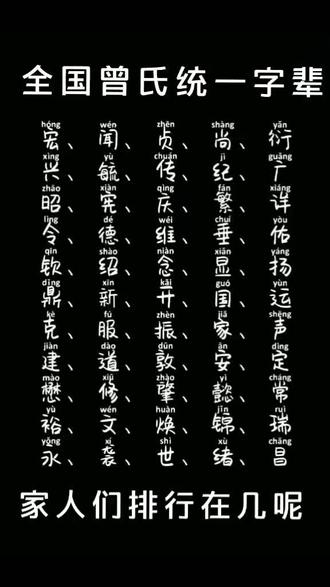 全国曾氏统一字辈
hóng wén zhēn shàng yǎn
宏、闻、贞、尚、衍
xìng yù chuán jì guǎng
兴、毓、传、纪、广
zhāo xiàn qìng fán xiáng
昭、宪、庆、繁、详
lìng dé wéi chuí yòu
令、德、维、垂、佑
qīn shào niàn xiǎn yáng
钦、绍、念、显、扬
dǐng xīn kāi guó yùn
鼎、新、开、国、运
kè fú zhèn jiā shēng
克、服、振、家、声
jiàn dào dūn ān dìng
建、道、敦、安、定
mào xiū zhào yì cháng
懋、修、肇、懿、常
yù wén huàn jǐn ruì
裕、文、焕、锦、瑞
yǒng xí shì xù chāng
永、袭、世、绪、昌
家人们排行在几呢